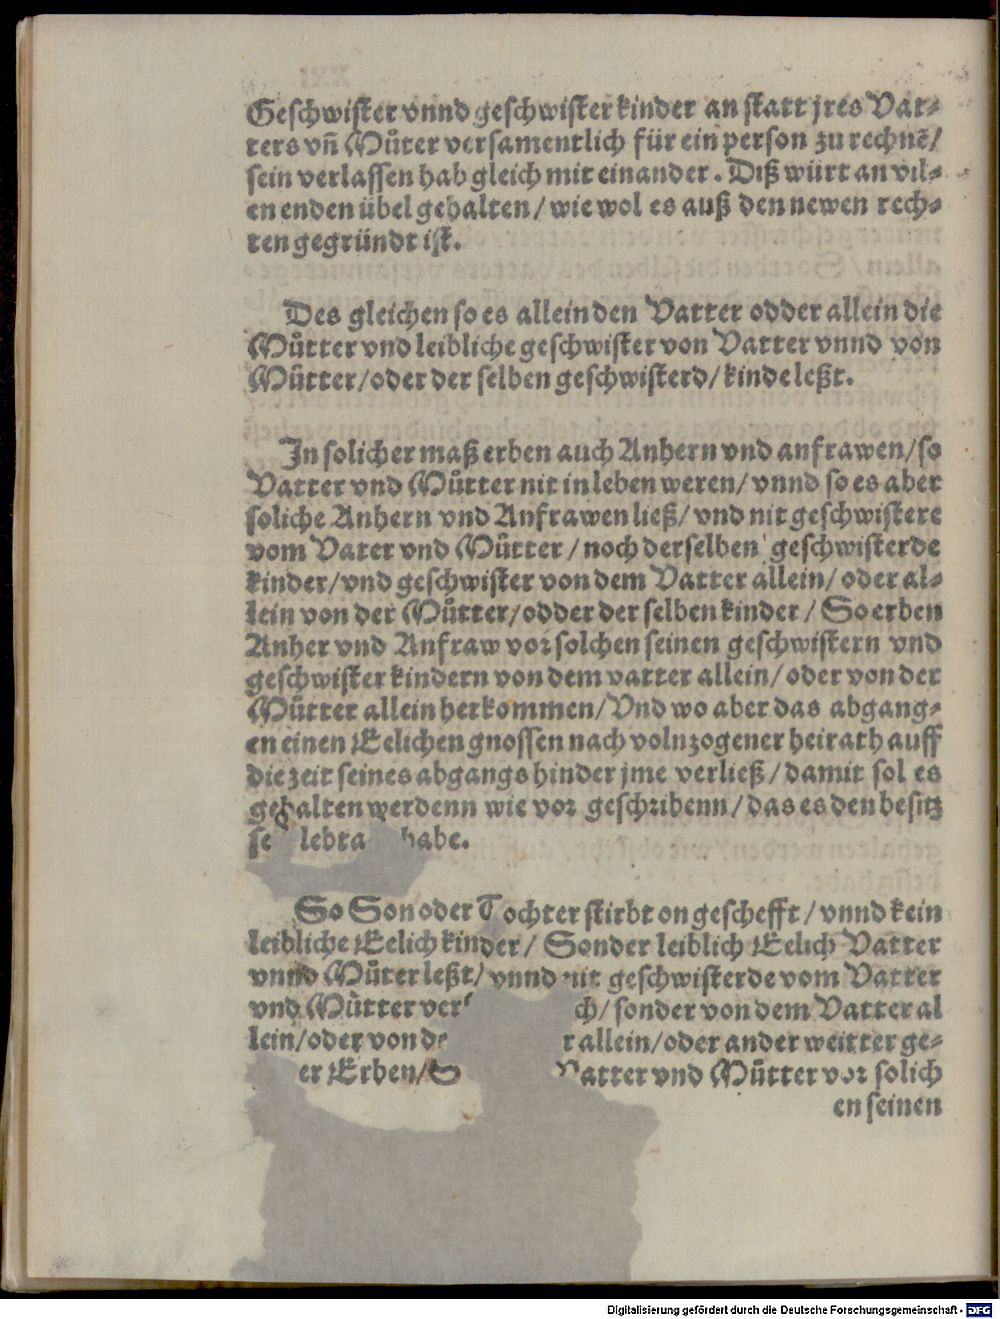 Geschwister vnnd geschwisterkinder an statt jres Vat-
ters vñ Můter versamentlich für ein person zu rechnẽ/
sein verlassen hab gleich mit einander. Diß würt an vil-
en enden übel gehalten/ wie wol es auß den newen rech-
ten gegründt ist.
Des gleichen so es allein den Vatter odder allein die
Můtter vnd leibliche geschwister von Vatter vnnd von
Můtter/oder der selben geschwisterd/kinde leßt.
In solicher maß erben auch Anhern vnd anfrawen/so
Vatter vnd Můtter nit in leben weren/ vnnd so es aber
soliche Anhern vnd Anfrawen ließ/ vnd nit geschwistere
vom Vater vnd Můtter/noch derselben geschwisterde
kinder/vnd geschwister von dem Vatter allein/ oder al-
lein von der Můtter/odder der selben kinder/ So erben
Anher vnd Anfraw vor solchen seinen geschwistern vnd
geschwister kindern von dem vatter allein/ oder von der
Můtter allein herkommen/ Vnd wo aber das abgang-
en einen Eelichen gnossen nach volnzogener heirath auff
die zeit seines abgangs hinder jme verließ/damit sol es
gehalten werdenn wie vor geschribenn/das es den besitz
lebta habe.
So Son oder Tochter stirbt on geschefft/vnnd kein
leibliche Eelich kinder/ Sonder leiblich Eelich Vatter
vnnd Můter leßt/ vnnd nit geschwisterde vom Vatter
vnd Můtter ch/sonder von dem Vatter al
lein/oder von allein/oder ander weitter ge-
er Erben/ Vatter vnd Můtter vor solich
en seinen
Digitalisierung gefördert durch die Deutsche Forschungsgemeinschaft - DFG